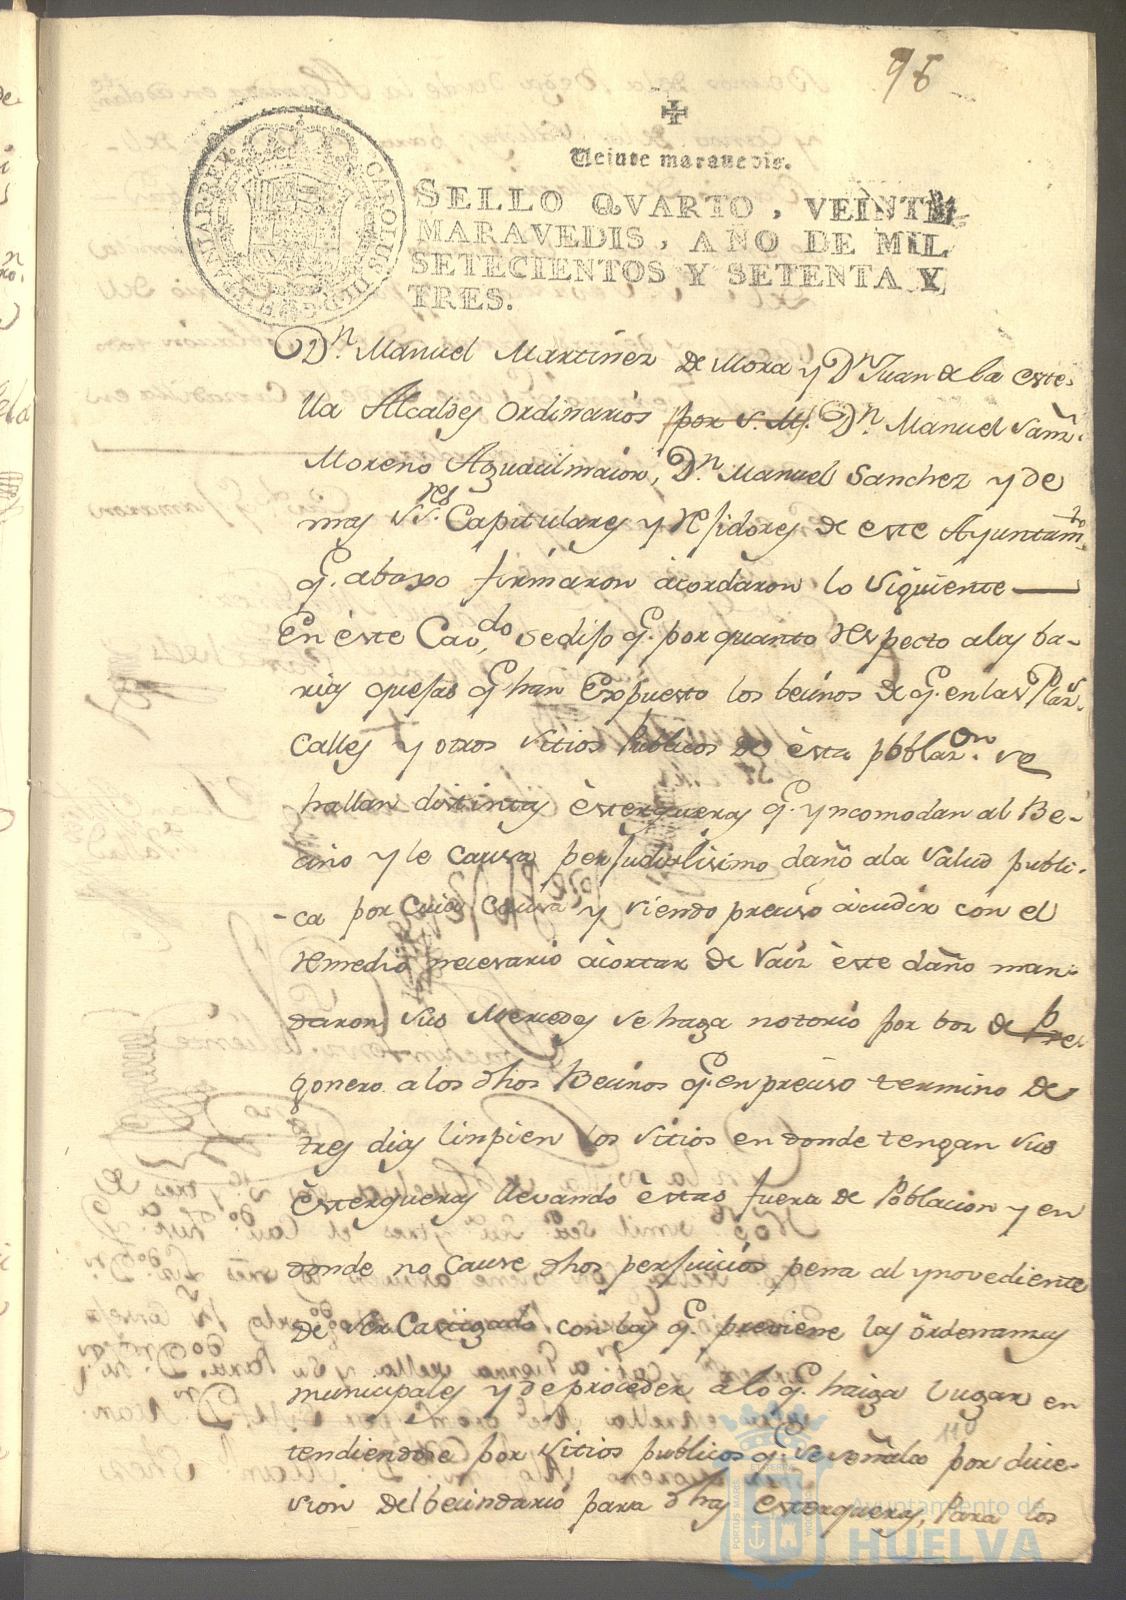 96
✠
Veinte maravedis.
SELLO QVARTO, VEINTE
MARAVEDIS, AÑO DE MIL
SETECIENTOS Y SETENTA Y
TRES.
CAROLUS III D G HISPANIAR REX
Dn. Manuel Martinez de Mora y Dn Juan de la este-
lla Alcaldes ordinarios por S. M. Dn. Manuel Sanz.
Moreno Aguacilmaior, Dn. Manuel Sanchez y de
mas SSres. Capitulares y Rejidores de este Ayuntamto.
q. abaxo firmaron acordaron lo siguiente
En èste Cavdo, se dijo q. por quanto respecto a las ba-
rias quejas q han Expuesto los becinos de q. en las Plazs.
calles y otros sitios Publicos de èsta poblazon. se
hallan distintas èsterqueras q. yncomodan al Be-
cino y le causa perjudisilisimo daño a la salud publi-
-ca por cuia causa, y siendo preciso àcudir con el
remedio necesario àcortar de raiz èste daño man-
daron sus Mercedes se haga notorio por boz de Pre-
gonero a los dhos Becinos q. en preciso termino de
tres dias linpien los sitios en donde tengan sus
èsterqueras llevando èstas fuera de Poblacion y en
donde no cause dhos perjuicios pena al ynovediente
de ser Castigado con las q. previene las òrdenanzas
municipales y de proceder a lo q. haiga lugar en
tendiendose por sitios publicos q. se señala por dicie-
sion del becindario para dhas èsterqueras, Para los
110
Ayuntamiento de
HUELVA